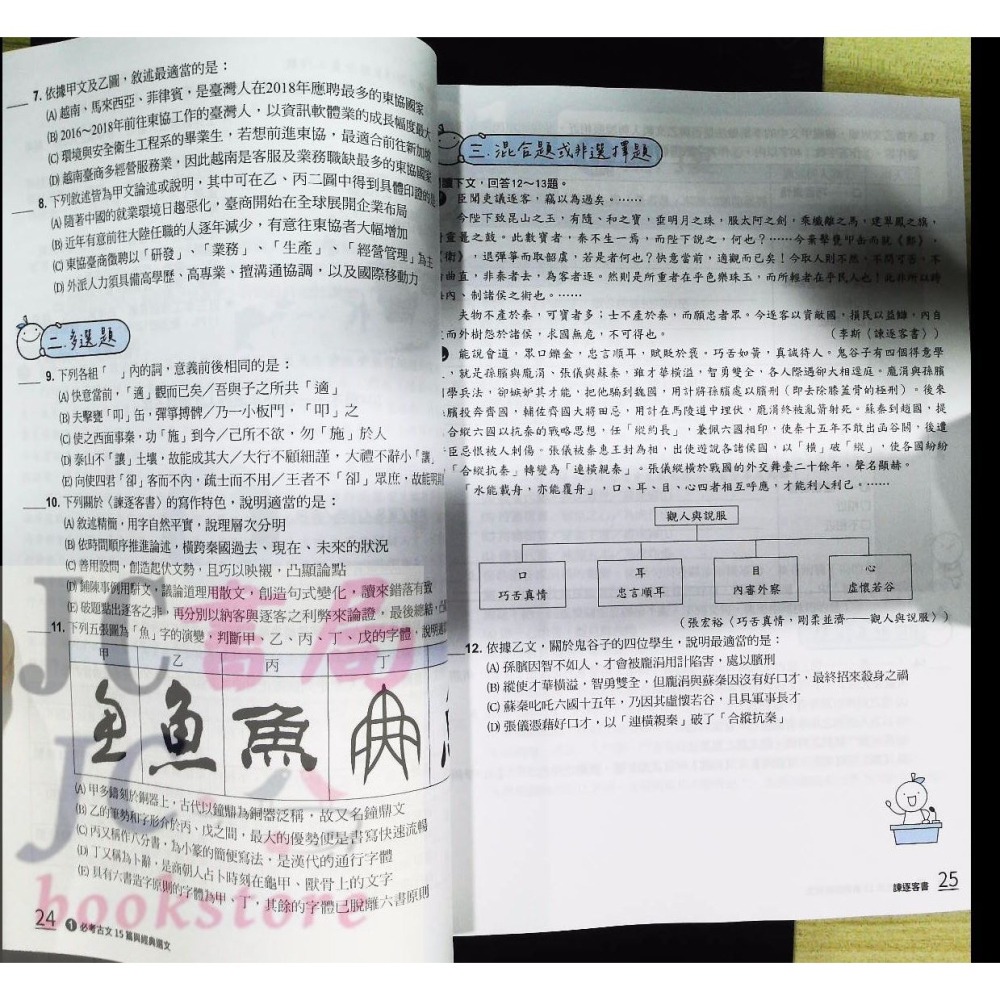 7. 依據甲文及乙圖，敘述最適當的是：
(A) 越南、馬來西亞、菲律賓，是臺灣人在2018年應聘最多的東協國家
(B) 2016～2018年前往東協工作的臺灣人，以資訊軟體業的成長幅度最大
(C) 環境與安全衛生工程系的畢業生，若想前進東協，最適合前往新加坡
(D) 越南臺商多經營服務業，因此越南是客服及業務職缺最多的東協國家
8. 下列敘述皆為甲文論述或說明，其中可在乙、丙二圖中得到具體印證的是
(A) 隨著中國的就業環境日趨惡化，臺商開始在全球展開企業布局
(B) 近年有意前往大陸任職的人逐年減少，有意往東協者大幅增加
(C) 東協臺商徵聘以「研發」、「業務」、「生產」、「經營管理」為主
(D) 外派人力須具備高學歷、高專業、擅溝通協調，以及國際移動力
二.多選題
9. 下列各組「　」內的詞，意義前後相同的是：
(A) 快意當前，「適」觀而已矣／吾與子之所共「適」
(B) 夫擊甕「叩」缶，彈箏搏髀／乃一小板門，「叩」之
(C) 使之西面事秦，功「施」到今／己所不欲，勿「施」於人
(D) 泰山不「讓」土壤，故能成其大／大行不顧細謹，大禮不辭小「讓」
(E) 向使四君「卻」客而不內，疏士而不用／王者不「卻」眾庶，故能明
10. 下列關於〈諫逐客書〉的寫作特色，說明適當的是：
(A) 敘述精簡，用字自然平實，說理層次分明
(B) 依時間順序推進論述，橫跨秦國過去、現在、未來的狀況
(C) 善用設問，創造起伏文勢，且巧以映襯，凸顯論點
(D) 鋪陳事例用駢文，議論道理用散文，創造句式變化，讀來錯落有致
(E) 破題點出逐客之非，再分別以納客與逐客之利弊來論證，最後總結
11. 下列五張圖為「魚」字的演變，判斷甲、乙、丙、丁、戊的字體，說明
甲 乙 丙 丁
(A) 甲多鑄刻於銅器上，古代以鐘鼎為銅器泛稱，故又名鐘鼎文
(B) 乙的筆勢和字形介於丙、戊之間，最大的優勢便是書寫快速流暢
(C) 丙又稱作八分書，為小篆的簡便寫法，是漢代的通行字體
(D) 丁又稱為卜辭，是商朝人占卜時刻在龜甲、獸骨上的文字
(E) 具有六書造字原則的字體為甲、丁，其餘的字體已脫離六書原則
24 1 必考古文15篇與經典選文
JC書局
JC
bookstore
三.混合題或非選擇題
讀下文，回答12～13題。
臣聞吏議逐客，竊以為過矣。……
今陛下致昆山之玉，有隨、和之寶，垂明月之珠，服太阿之劍，乘纖離之馬，建翠鳳之旗，
靈鼉之鼓。此數寶者，秦不生一焉，而陛下說之，何也？……今棄擊甕叩缶而就《鄭》、
《衛》，退彈箏而取韶虞，若是者何也？快意當前，適觀而已矣！今取人則不然，不問可否，不
曲直，非秦者去，為客者逐。然則是所重者在乎色樂珠玉，而所輕者在乎民人也！此非所以跨
內、制諸侯之術也。……
夫物不產於秦，可寶者多；士不產於秦，而願忠者眾。今逐客以資敵國，損民以益讎，內自
而外樹怨於諸侯，求國無危，不可得也。　（李斯〈諫逐客書〉）
能說會道，眾口鑠金，忠言順耳，賦貶於褒。巧舌如簧，真誠待人。鬼谷子有四個得意學
，就是孫臏與龐涓、張儀與蘇秦，雖才華橫溢，智勇雙全，各人際遇卻大相逕庭。龐涓與孫臏
學兵法，卻嫉妒其才能，把他騙到魏國，用計將孫臏處以臏刑（即去除膝蓋骨的極刑）。後來
臏投奔齊國，輔佐齊國大將田忌，用計在馬陵道中埋伏，龐涓終被亂箭射死。蘇秦到趙國，提
合縱六國以抗秦的戰略思想，任「縱約長」，兼佩六國相印，使秦十五年不敢出函谷關，後遭
臣忌恨被人刺傷。張儀被秦惠王封為相，出使遊說各諸侯國，以「橫」破「縱」，使各國紛紛
「合縱抗秦」轉變為「連橫親秦」。張儀縱橫於戰國的外交舞臺二十餘年，聲名顯赫。
「水能載舟，亦能覆舟」，口、耳、目、心四者相互呼應，才能利人利己。……
觀人與說服
口 耳 目 心
巧舌真情 忠言順耳 內審外察 虛懷若谷
（張宏裕〈巧舌真情，剛柔並濟——觀人與說服〉）
12. 依據乙文，關於鬼谷子的四位學生，說明最適當的是：
(A) 孫臏因智不如人，才會被龐涓用計陷害，處以臏刑
(B) 縱使才華橫溢，智勇雙全，但龐涓與蘇秦因沒有好口才，最終招來殺身之禍
(C) 蘇秦叱吒六國十五年，乃因其虛懷若谷，且具軍事長才
(D) 張儀憑藉好口才，以「連橫親秦」破了「合縱抗秦」
諫逐客書 25